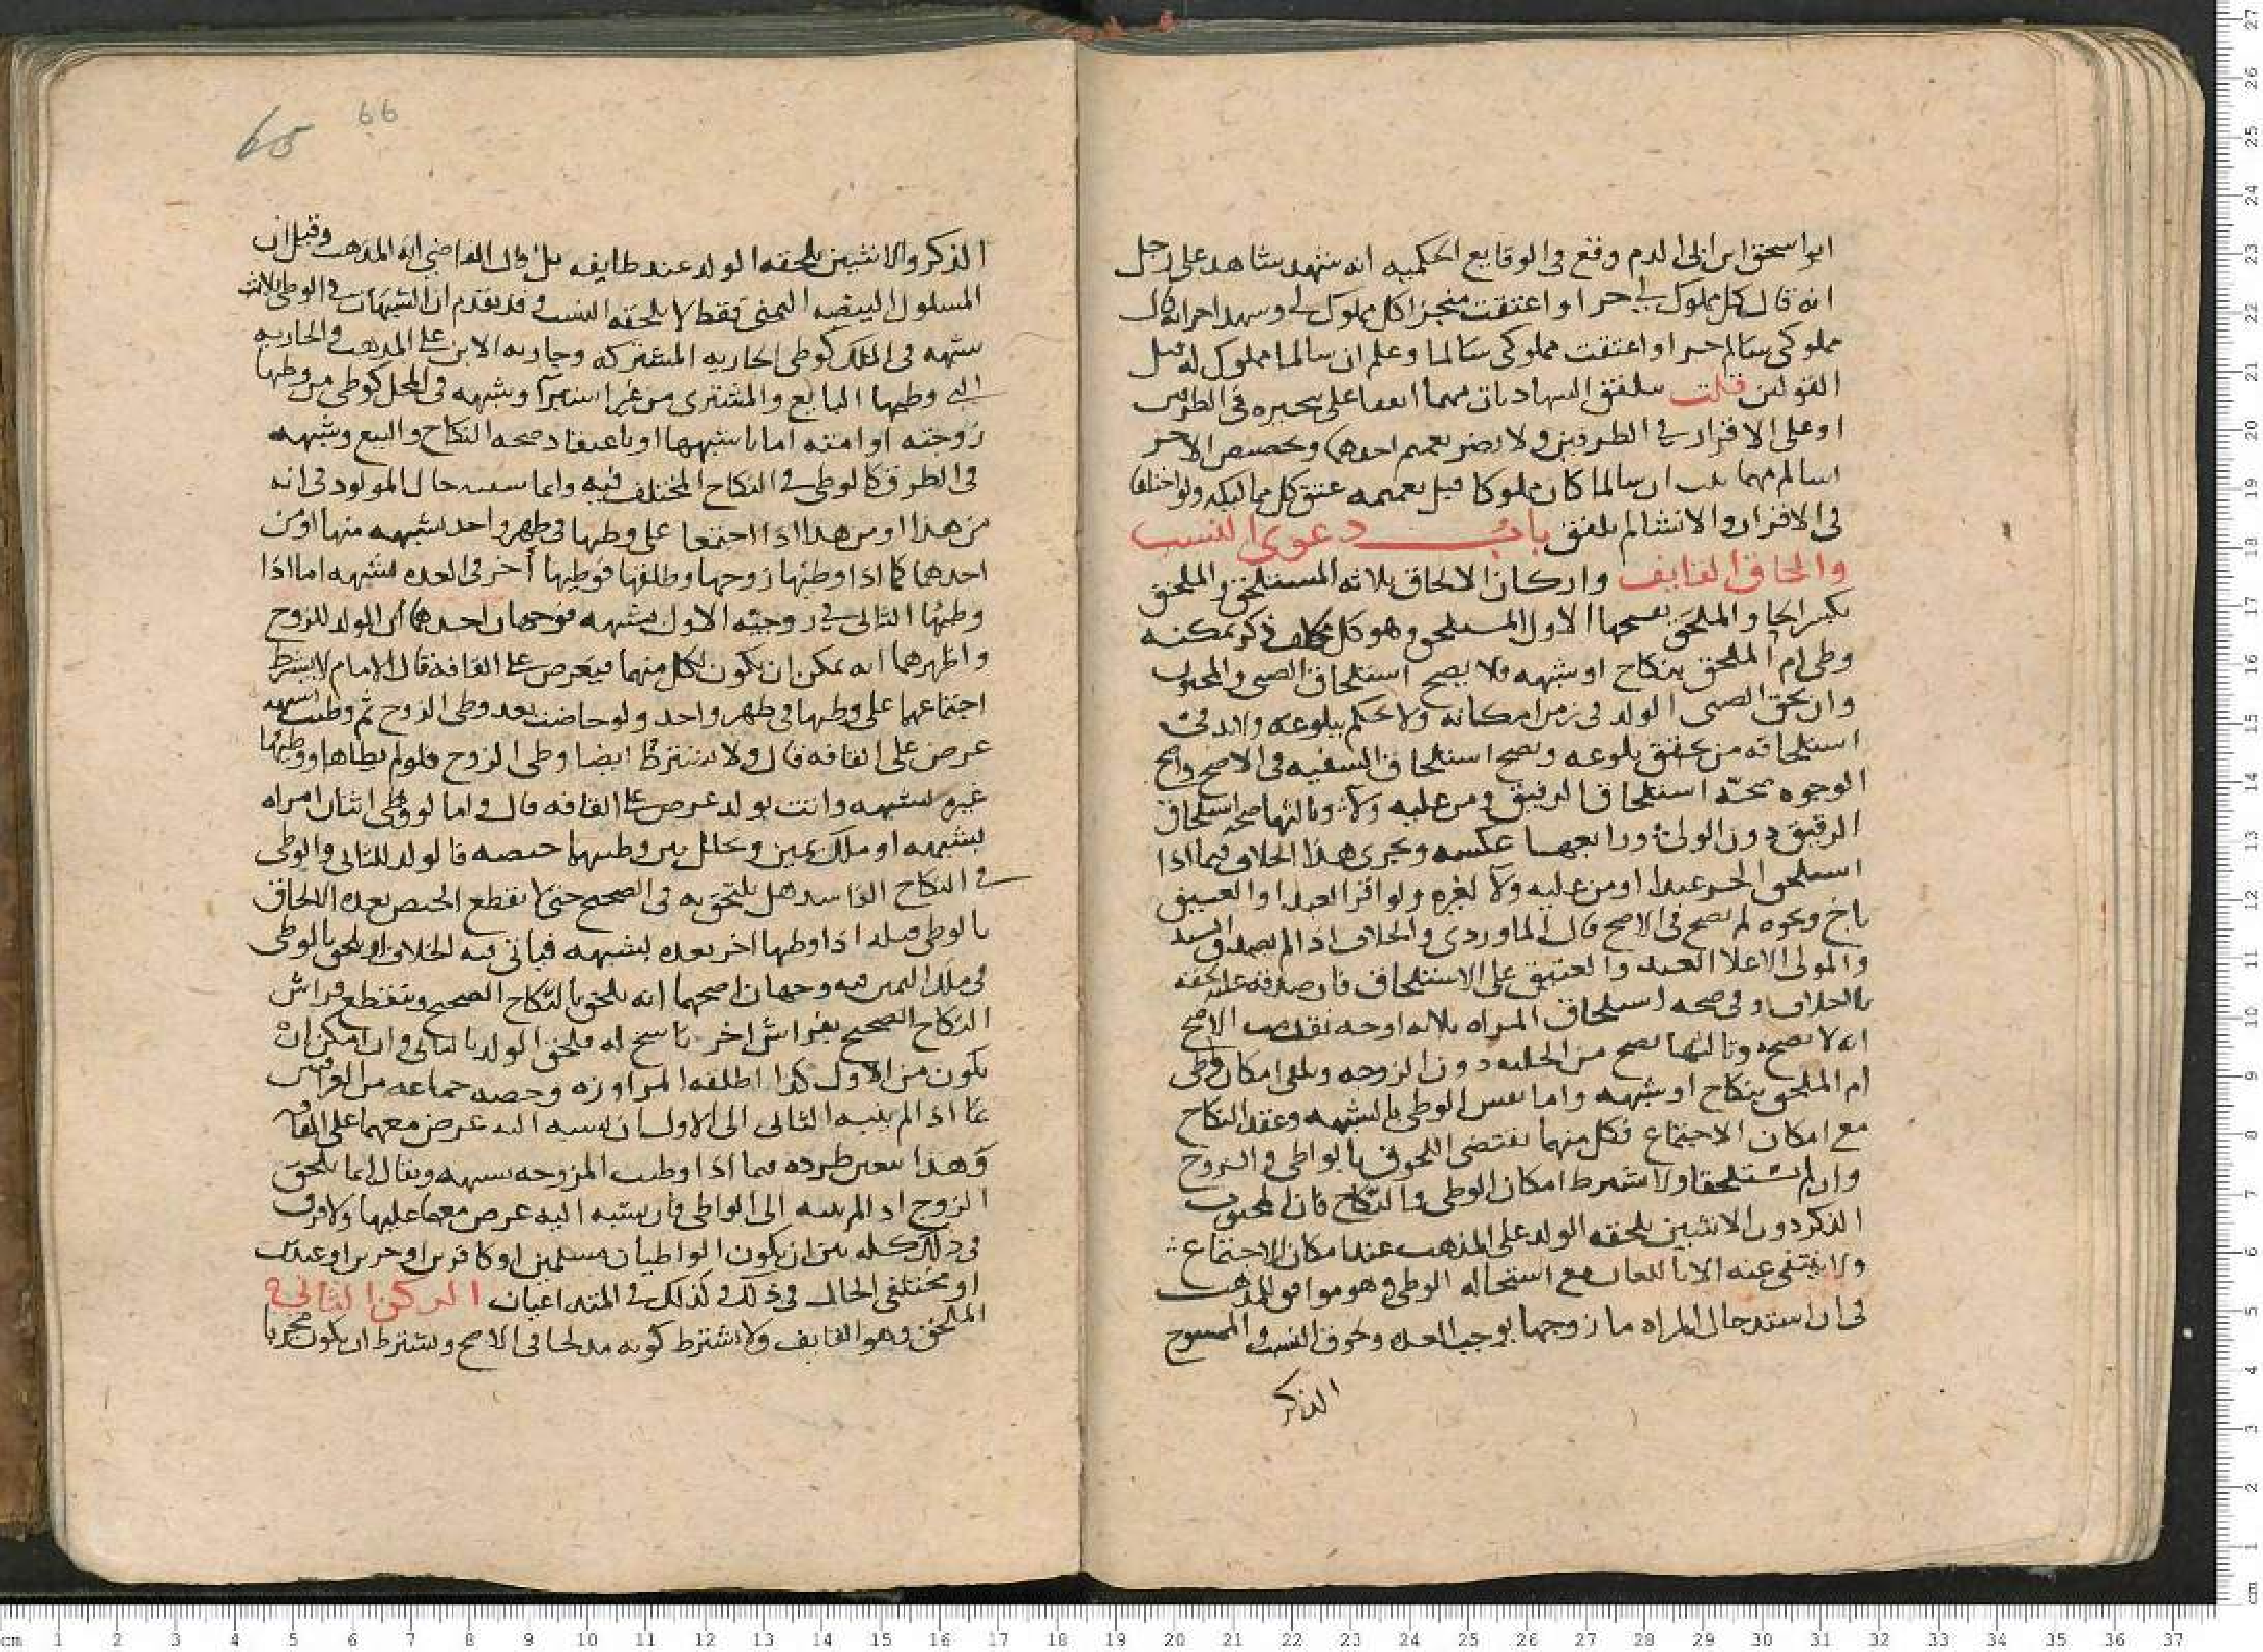 ابو اسحق ابن ابى الدم وقع فى الوقايع الحكميه انه شهد شاهد على رجل
انه قال كل مملوك لى حر او اعتقت منجزا كل مملوك لى وشهد اخر انه قال
مملوكى سالم حر او اعتقت مملوكى سالما وعلم ان سالما مملوك له قبل
القولين قلت تلفق الشهادتان مهما اتفقا على تنجيزه فى الطرفين
او على الاقرار فى الطرفين ولا يضر تعميم احدهما وتخصيص الاخر
سالم مهما ثبت ان سالما كان مملوكا قبل تعميمه عتق كل مماليكه ولو اختلفا
فى الاقرار والانشا لم تلفق باب دعوى النسب
والحاق القايف واركان الالحاق ثلاثه المستلحق والملحق
بكسر الحا والملحق بفتحها الاول المستلحق وهو كل مكلف ذكر يمكنه
وطى ام الملحق بنكاح او شبهه فلا يصح استلحاق الصبى والمجنون
وان لحق الصبى الولد فى زمن امكانه ولا يحكم ببلوغه ولابد فى
استلحاقه من تحقق بلوغه ويصح استلحاق السفيه فى الاصح واصح
الوجوه صحة استلحاق الرقيق ومن عليه ولا وثالثها صحه استلحاق
الرقيق دون الولى ورابعها عكسه ويجرى هذا الخلاف فيما اذا
استلحق الحر عبدا او من عليه ولا لغيره ولو اقر العبد او العتيق
باخ ونحوه لم يصح فى الاصح قال الماوردى والخلاف اذا لم يصدق السيد
والمولى الاعلا العبد والعتيق على الاستلحاق فان صدقه عليه لحقه
بلا خلاف وفى صحه استلحاق المراه ثلاثه اوجه تقدمت الاصح
انه لا يصح وثالثها يصح من الخليه دون الزوجه ويكفى امكان وطى
ام الملحق بنكاح او شبهه واما نفس الوطى بالشبهه وعقد النكاح
مع امكان الاجتماع فكل منهما يقتضى اللحوق بالواطى والزوج
وان لم يستلحقا ولا اشترط امكان الوطى فى النكاح فان المجبوب
الذكر دون الانثيين يلحقه الولد على المذهب عند امكان الاجتماع
ولا ينتفى عنه الا باللعان مع استحاله الوطى وهو موافق للمذهب
فى ان استدخال المراه ما زوجها يوجب العده ولحوق النسب والممسوح
الذكر
65 66
الذكر والانثيين يلحقه الولد عند طايفه بل قال القاضى انه المذهب وقيل ان
المسلول البيضه اليمنى فقط لا يلحقه النسب وقد تقدم ان الشبهات فى الوطى ثلاث
شبهه فى الملك كوطى الجاريه المشتركه وجاريه الابن على المذهب والجاريه
التى وطيها البايع والمشترى من غير استبرآ وشبهه فى المحل كوطى من وطيها
زوجته او امته اما باشتباهها او باعتقاد صحه النكاح والبيع وشبهه
فى الطرق كالوطى فى النكاح المختلف فيه وانما يشتبه حال المولود فى انه
من هذا او من هذا اذا اجتمعا على وطيها فى طهر واحد بشبهه منهما او من
احدهما كما اذا وطيها زوجها وطلقها فوطيها آخر فى العده بشبهه اما اذا
وطيها الثانى فى زوجيه الاول بشبهه فوجهان احدهما ان الولد للزوج
واظهرهما انه يمكن ان يكون لكل منهما فيعرض على القافه قال الامام لا يشترط
اجتماعهما على وطيها فى طهر واحد ولو حاضت بعد وطى الزوج ثم وطيت بشبهه
عرض على القافه قال ولا يشترط ايضا وطى الزوج فلو لم يطاها ووطيها
غيره بشبهه واتت بولد عرض على القافه قال واما لو وطى اثنان امراه
بشبهه او ملك يمين وتخلل بين وطييهما حيضه فالولد للثانى والوطى
فى النكاح الفاسد هل يلتحق به فى الصحيح حتى لا يقطع الحيض بعده الالحاق
بالوطى قبله اذا وطيها اخر بعده بشبهه فياتى فيه الخلاف او يلحق بالوطى
فى ملك اليمين فيه وجهان اصحهما انه يلحق بالنكاح الصحيح وينقطع فراش
النكاح الصحيح بفراش اخر ناسخ له فيلحق الولد بالثانى وان امكن ان
يكون من الاول كذا اطلقه المراوزه وخصه جماعه من العراقيين
بما اذا لم ينسبه الثانى الى الاول فان نسبه اليه عرض معهما على القافه
وهذا يتعين طرده فيما اذا وطيت المزوجه بشبهه ويقال انما يلحق
الزوج اذا لم ينسبه الى الواطى فان نسبه اليه عرض معهما عليها ولا فرق
فى ذلك كله بين ان يكون الواطيان مسلمين او كافرين او حرين او عبدين
او مختلفى الحال فى ذلك وكذلك فى المتداعيان الركن الثانى
الملحق وهو القايف ولا يشترط كونه مدلجيا فى الاصح ويشترط ان يكون مجربا